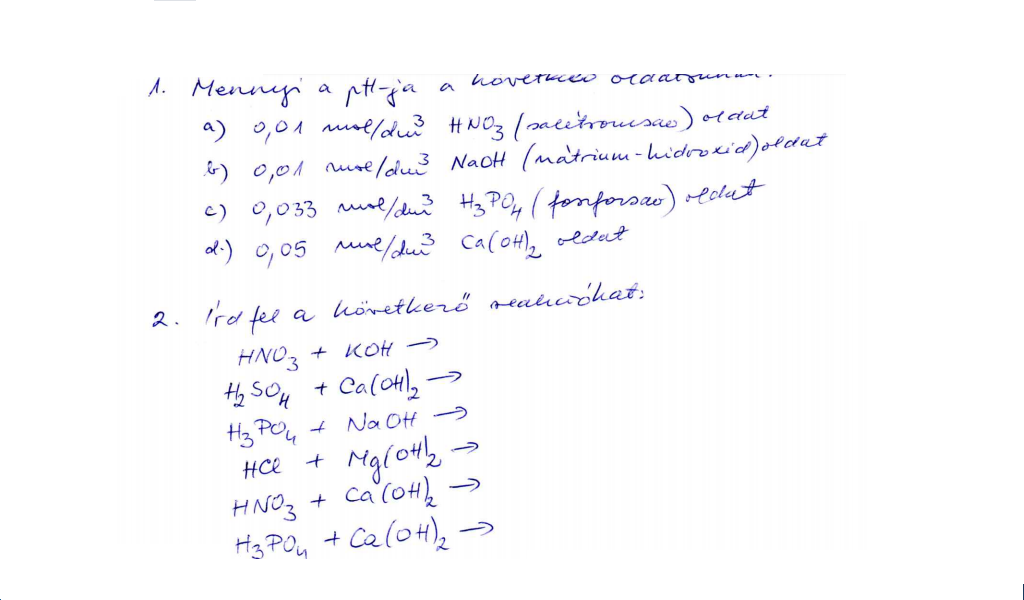 1. Mennyi a pH-ja a következő oldatoknak?
a) 0,01 mol/dm³ HNO₃ (salétromsav) oldat
b) 0,01 mol/dm³ NaOH (nátrium-hidroxid) oldat
c) 0,033 mol/dm³ H₃PO₄ (foszforsav) oldat
d.) 0,05 mol/dm³ Ca(OH)₂ oldat
2. Írd fel a következő reakciókat:
HNO₃ + KOH →
H₂SO₄ + Ca(OH)₂ →
H₃PO₄ + NaOH →
HCl + Mg(OH)₂ →
HNO₃ + Ca(OH)₂ →
H₃PO₄ + Ca(OH)₂ →